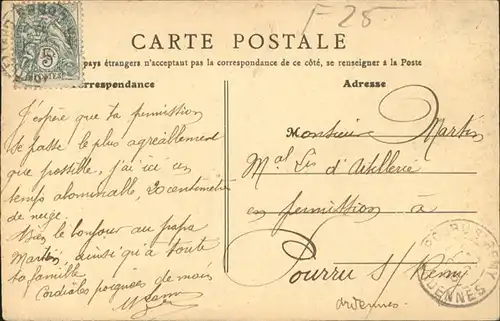 F-25
CARTE POSTALE
pays étrangers n'acceptant pas la correspondance de ce côté, se renseigner à la Poste
orrespondance
Adresse
J'espère que ta permission
se passe le plus agréablement
que possible, j'ai ici un
temps abominable, 20 centimètres
de neige.
Bien le bonjour au papa
Martin, ainsi qu'à toute
ta famille.
Cordiales poignées de main
Monsieur Martin
Mal Lis d'Artillerie
en permission à
Pourru s/ Remy
Ardennes
5
POURU-ST-REMY
ARDENNES